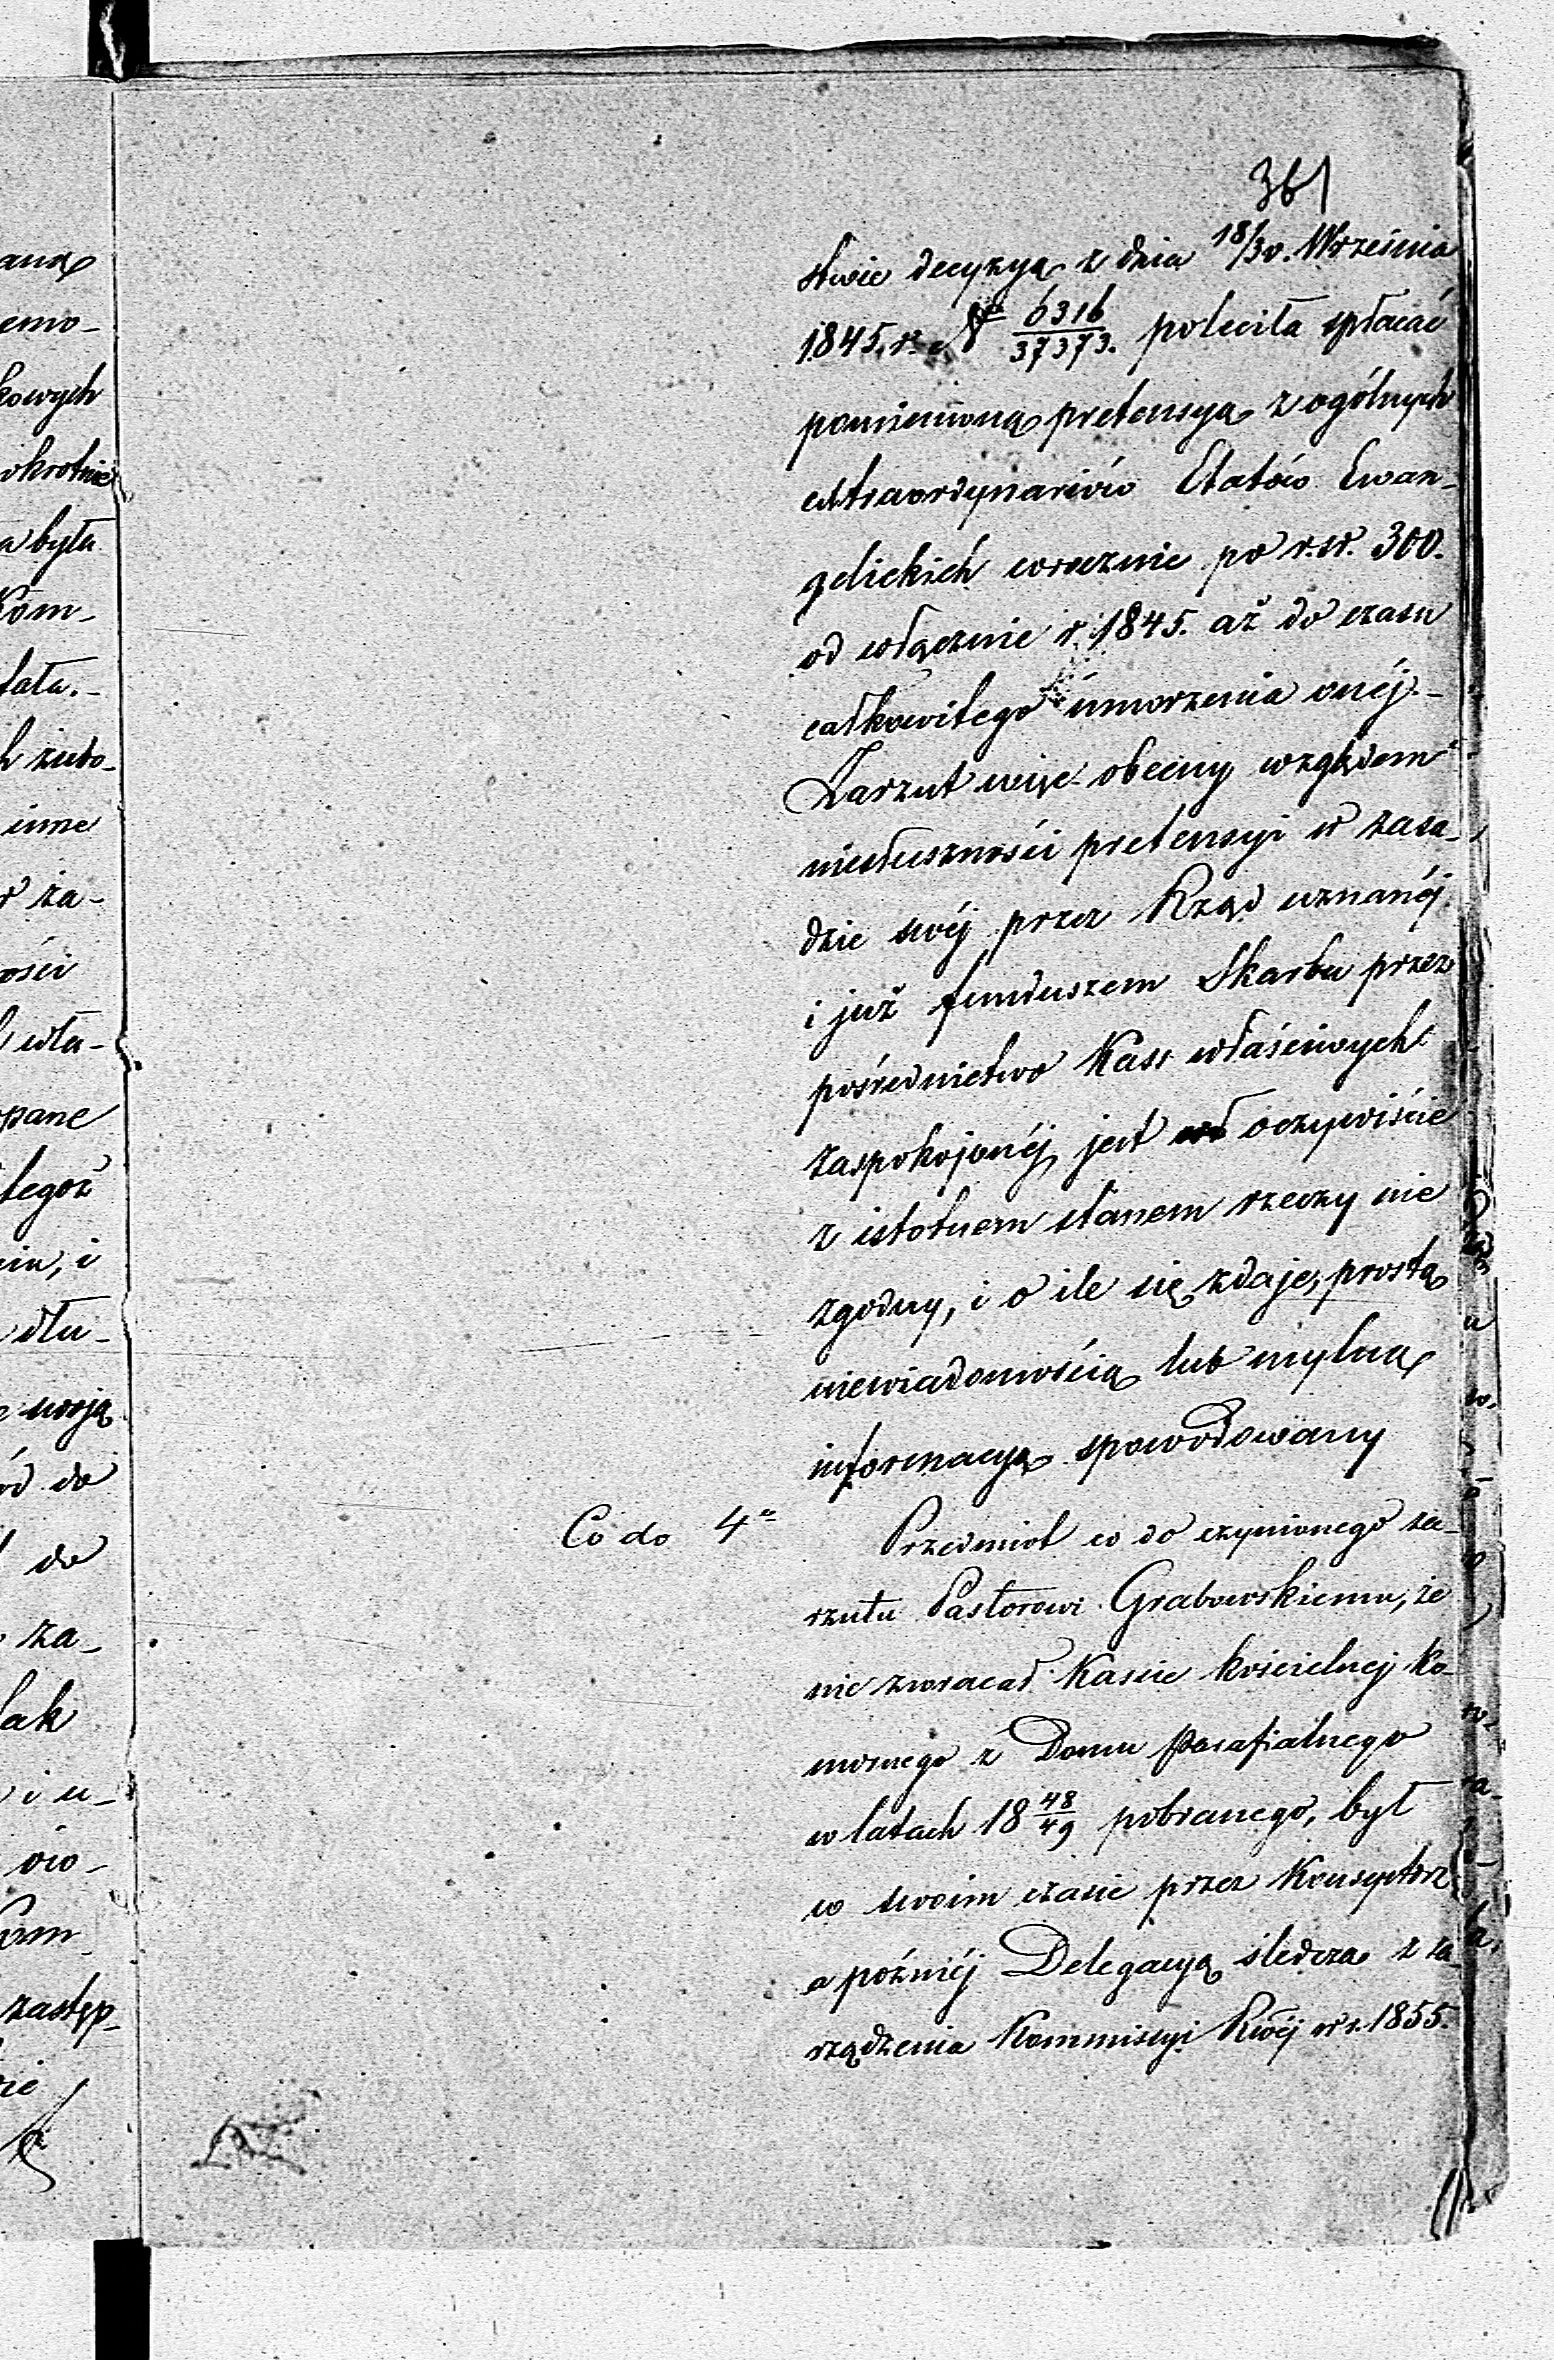 361
stwie decyzyą z dnia 18/30. Września
1845. r. № 6316/37373. poleciła spłacać
pomienioną pretensyą z ogólnych
extraordynariów Etatów Ewan-
gelickich corocznie po r.sr. 300.
od włącznie r. 1845. aż do czasu
całkowitego umorzenia onéj.-
Zarzut więc obecny względem
niesłuszności pretensyi w zasa-
dzie swéj przez Rząd uznanéj
i już funduszem Skarbu przez
pośrednictwo Kass właściwych
zaspokojonéj, jest oczywiście
z istotnem stanem rzeczy nie
zgodny, i o ile się zdaje, prostą
niewiadomością lub mylną
informacyą spowodowany
Co do 4o
Przedmiot co do czynionego za-
rzutu Pastorowi Grabowskiemu, że
nie zwracał Kassie kościelnej ko-
mornego z Domu Parafialnego
w latach 18 48/49 pobranego, był
w swoim czasie przez Konsystorz
a poźniéj Delegacyą śledczą z za-
rządzenia Kommissyi Rwéj w r. 1855.